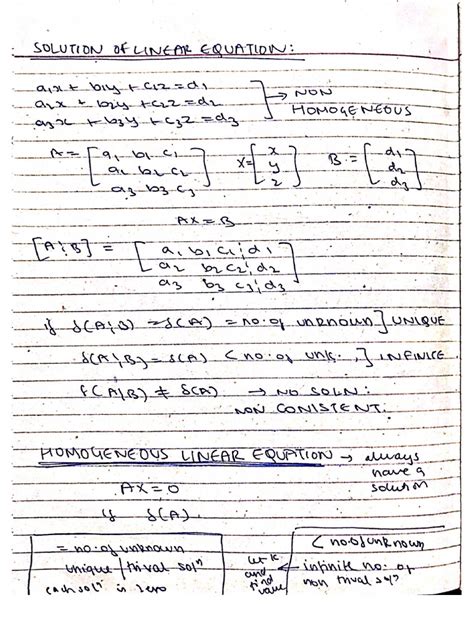 SOLUTION OF LINEAR EQUATION:
a₁x + b₁y + c₁z = d₁
a₂x + b₂y + c₂z = d₂
a₃x + b₃y + c₃z = d₃
→ NON
HOMOGENEOUS
A = [a₁ b₁ c₁ X = [x B = [d₁
a₂ b₂ c₂ y d₂
a₃ b₃ c₃] z] d₃]
AX = B
[A¦B] = [a₁ b₁ c₁¦d₁
a₂ b₂ c₂¦d₂
a₃ b₃ c₃¦d₃]
if ρ(A¦B) = ρ(A) = no. of unknown] UNIQUE
ρ(A¦B) = ρ(A) < no. of unk. ] INFINITE
ρ(A¦B) ≠ ρ(A) → NO SOLN:
NON CONISTENT.
HOMOGENEOUS LINEAR EQUATION → always
have a
solution
AX = 0
if ρ(A)
= no. of unknown
unique / trival solⁿ
each solⁿ is zero
< no. of unknown
infinite no. of
non trival solⁿ
let k
and
find
value